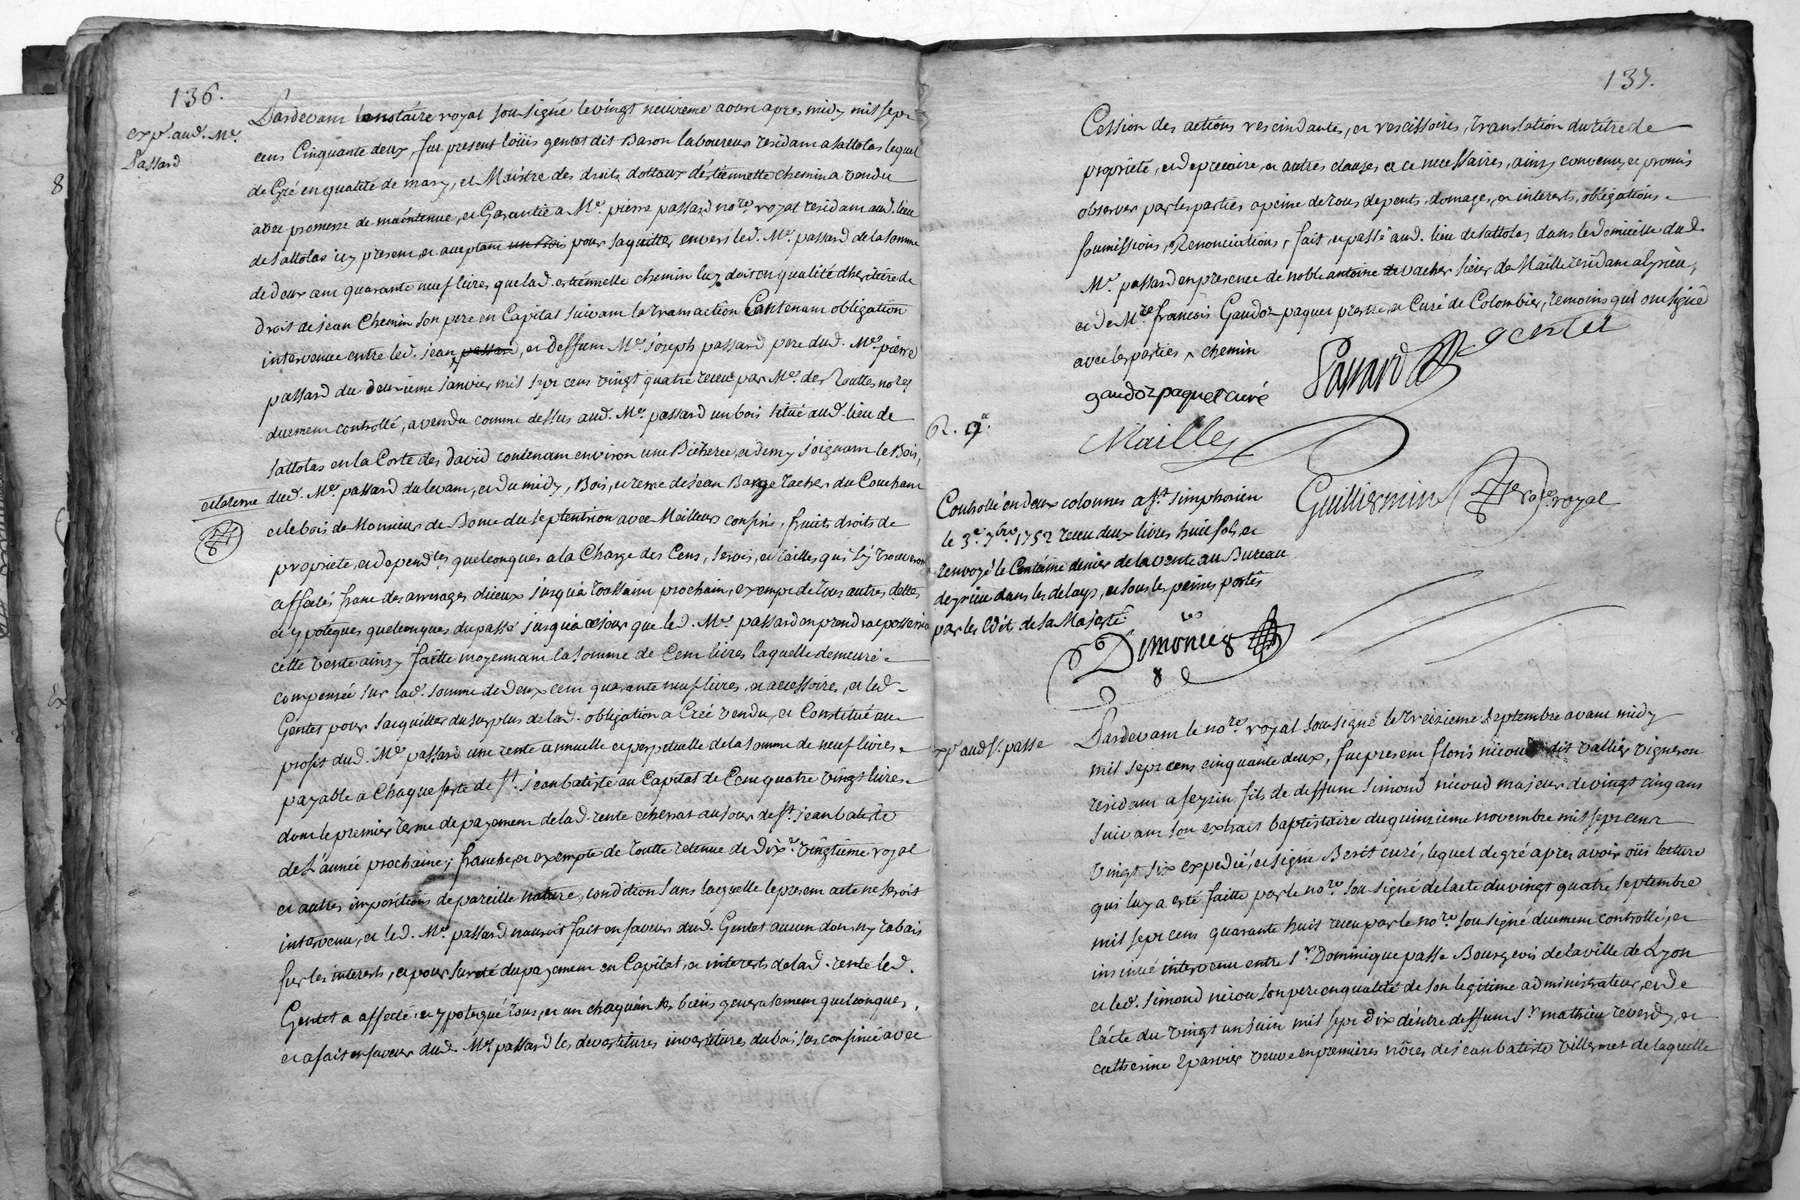 136.
exp. aud. Me.
Passard
Pardevant le notaire royal soussigné le vingt neuvieme aoust apres midy mil sept
cens Cinquante deux, fut present loüis gentet dit Baron laboureur residant a sattolas lequel
de Gré en qualité de mary, et Maistre des droits dottaux d'estiennette chemin a vendu
avec promesse de maintenue, et Garantie a Me. pierre passard nore. royal residant aud. lieu
de sattolas icy present et acceptant un bois pour s'aquitter envers led. Me. passard de la somme
de deux cent quarante neuf livres que lad. estiennette chemin luy doit en qualité d'heritiere de
droit de jean Chemin son pere en Capital suivant la transaction Contenant obligation
intervenue entre led. jean passard, et deffunt Me. joseph passard pere dud. Me. pierre
passard du deuxieme janvier mil sept cens vingt quatre receue par Me. des Routtes nore
duement controllé, a vendu comme dessus aud. Me. passard un bois situé aud. lieu de
sattolas en la Corte des david contenant environ une Bicherée, et demy joignant le Bois,
et terre
dud. Me. passard du levant, et du midy, Bois, et terre de jean Barge tacher du Couchant
et le bois de Monsieur de Bome du septentrion avec Meilleurs confins, fruits droits de
propriété, et dependces quelconques a la Charge des Cens, servis, et tailles qui s'y trouveront
affectés franc des arrerages d'iceux jusqu'a toussaint prochain, exempt de tous autres dettes
et ypoteques quelconques du passé jusqu'a ce jour que led. Me. passard en prendra possession
cette vente ainsy faitte moyennant la somme de Cent livres laquelle demeure
compensée sur lad. somme de deux cent quarante neuf livres, et accessoires, et led.
Gentet pour s'acquitter du surplus de lad. obligation a Créé vendu, et Constitué au
profit dud. Me. passard une rente annuelle et perpetuelle de la somme de neuf livres
payable a Chaque feste de st. jean batiste au Capital de Cent quatre vingt livres
dont le premier terme de payement de lad. rente echerrat au jour de st. jean batiste
de L'année prochaine; franche, et exempte de toutte retenue de dixe. vingtieme royal
et autres impositions de pareille nature, condition sans laquelle le present acte ne seroit
intervenu, et led. Me. passard n'auroit fait en faveur dud. Gentet aucun don, ny rabais
sur les interets, et pour sureté du payement en Capital, et interets de lad. rente led.
Gentet a affecté, et ypotequé tous, et un chaquun ses biens generalement quelconques,
et a fait en faveur dud. Me. passard les devestitures investitures du bois sus confiné avec
137.
Cession des actions rescindantes, et rescissoires, translation du titre de
propriété, et de precaire, et autres clauses a ce necessaires, ainsy convenu, et promis
observer par les parties a peine de tous depents domages, et interets, obligations
soumissions, Renonciations, fait, et passé aud. lieu de sattolas dans le domicille dud.
Me. passard en presence de noble antoine de vacher sieur de Maille residant a lyrieu,
et de Mre. francois Gaudoz paquet prestre, et Curé de Colombier, temoins qui ont signé
avec les parties chemin
Passard gentet
gaudoz paquet curé
R. 9d.
Mailles
Guilliermin nore royal
Controllé en deux colonnes a st. simphorien
le 3e. 7bre 1752 receu deux livres huit sols, et
renvoyé le Centième denier de la vente au Bureau
de yrieu dans les delays, et sous les peines portés
par les Edit de sa Majesté
Dimonier
exp aud sr. passe
Pardevant le nore. royal soussigné le treizieme septembre avant midy
mil sept cens cinquante deux, fut present floris nicoud dit vallier vigneron
residant a seyrin fils de deffunt simond nicoud majeur de vingt cinq ans
suivant son extrait baptistaire du quinzieme novembre mil sept cent
vingt six expedié, et signé Berit curé, lequel de gré apres avoir oüi lecture
qui luy a esté faitte par le nore. soussigné de l'acte du vingt quatre septembre
mil sept cens quarante huit receu par le nore soussigné duement controllé, et
insinué intervenu entre sr. Dominique passe Bourgeois de la ville de Lyon
et led. simond nicou son pere en qualité de son legitime administrateur, et de
l'acte du vingt un juin mil sept dix d'entre deffunt sr. mathieu reverdy, et
catherine eparvier veuve en premieres nôces de jean batiste villermet de laquelle